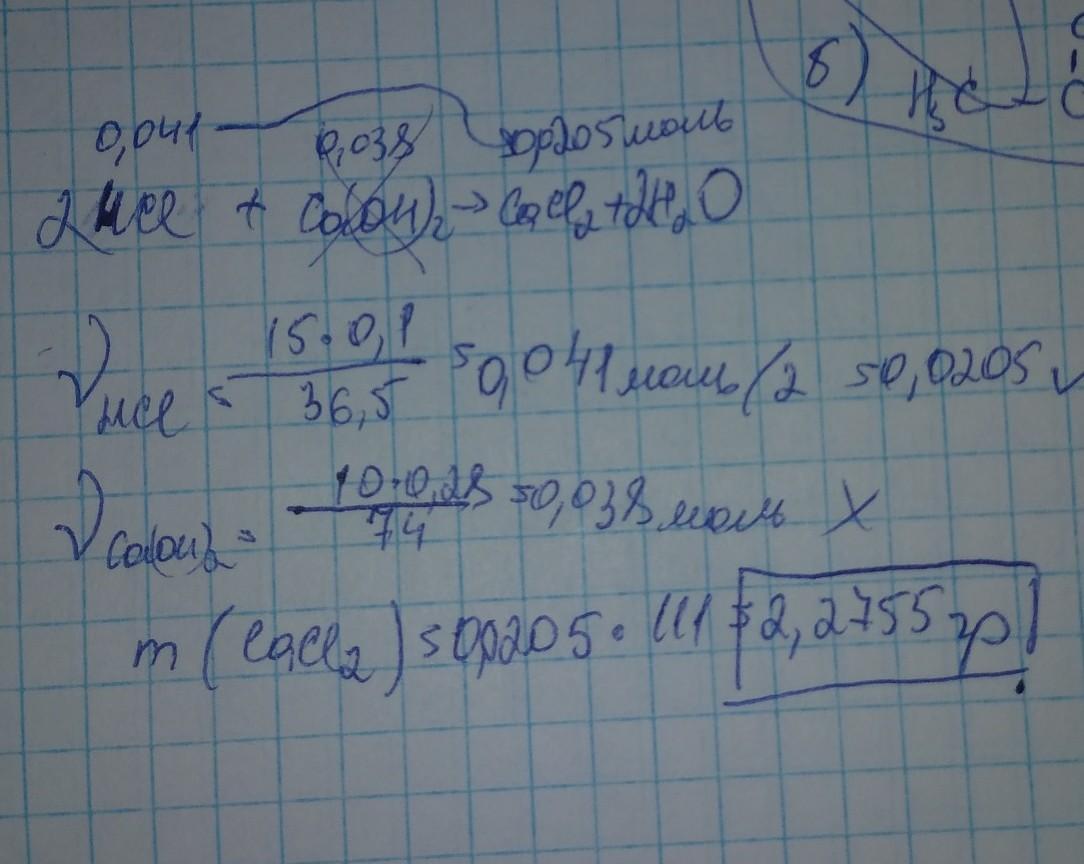 б) H₃C C C
0,041 0,038 0,0205 моль
2HCl + Ca(OH)₂ → CaCl₂ + 2H₂O
νHCl = 15·0,1 / 36,5 = 0,041 моль /2 = 0,0205 ✓
νCa(OH)₂ = 10·0,28 / 74 = 0,038 моль X
m(CaCl₂) = 0,0205 · 111 = 2,2755 гр.